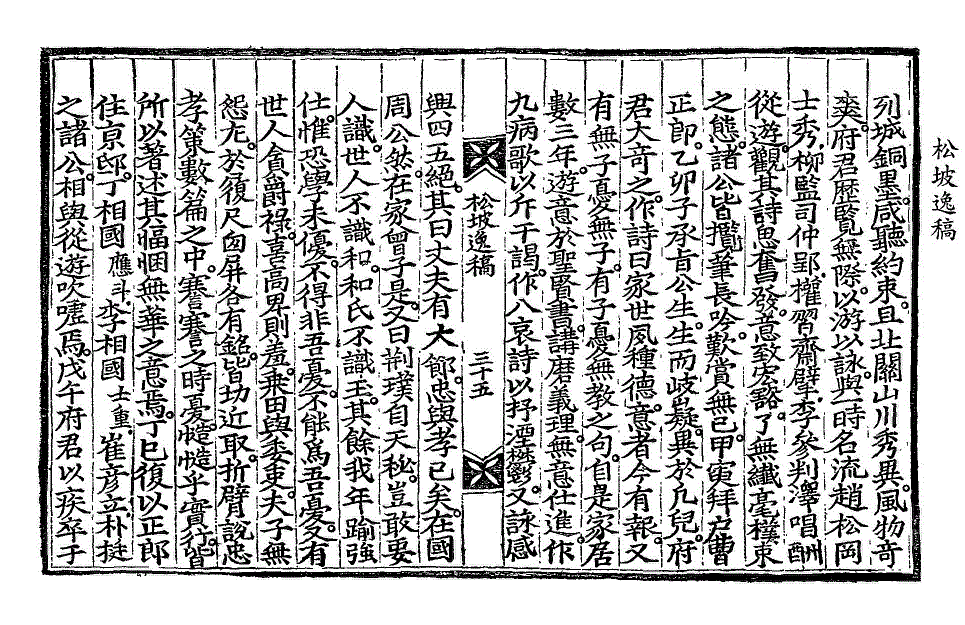 松坡逸稿
列城銅墨。咸聽約束。且北關山川秀異。風物奇
爽。府君歷覽無際。以游以詠。與一時名流趙松岡
士秀,柳監司仲郢,權習齋擘,李參判澤唱酬
從遊。觀其詩思奮發。意致宏豁。了無纖毫樸束
之態。諸公皆攬筆長吟。歎賞無已。甲寅拜戶曹
正郞。乙卯子承旨公生。生而岐嶷。異於凡兒。府
君大奇之。作詩曰家世夙種德。意者今有報。又
有無子憂無子。有子憂無敎之句。自是家居
數三年。遊意於聖賢書。講磨義理。無意仕進。作
九病歌以斥干謁。作八哀詩以抒湮鬱。又詠感
松坡逸稿 三十五
興四五絶。其曰丈夫有大節。忠與孝已矣。在國
周公然。在家曾子是。又曰荊璞自天秘。豈敢要
人識。世人不識和。和氏不識玉。其餘我年踰強
仕。惟恐學未優。不得非吾憂。不能爲吾憂。又有
世人貪爵祿。喜高卑則羞。乘田與委吏。夫子無
怨尤。於復尺匈屛各有銘。皆切近取。折臂說忠
孝策數篇之中。謇謇之時憂。慥慥乎實行。皆
所以著述其悃愊無華之意焉。丁巳復以正郞
住京邸。丁相國應斗,李相國士重,崔彦立,朴挺
之諸公。相與從遊吹噓焉。戊午府君以疾卒于